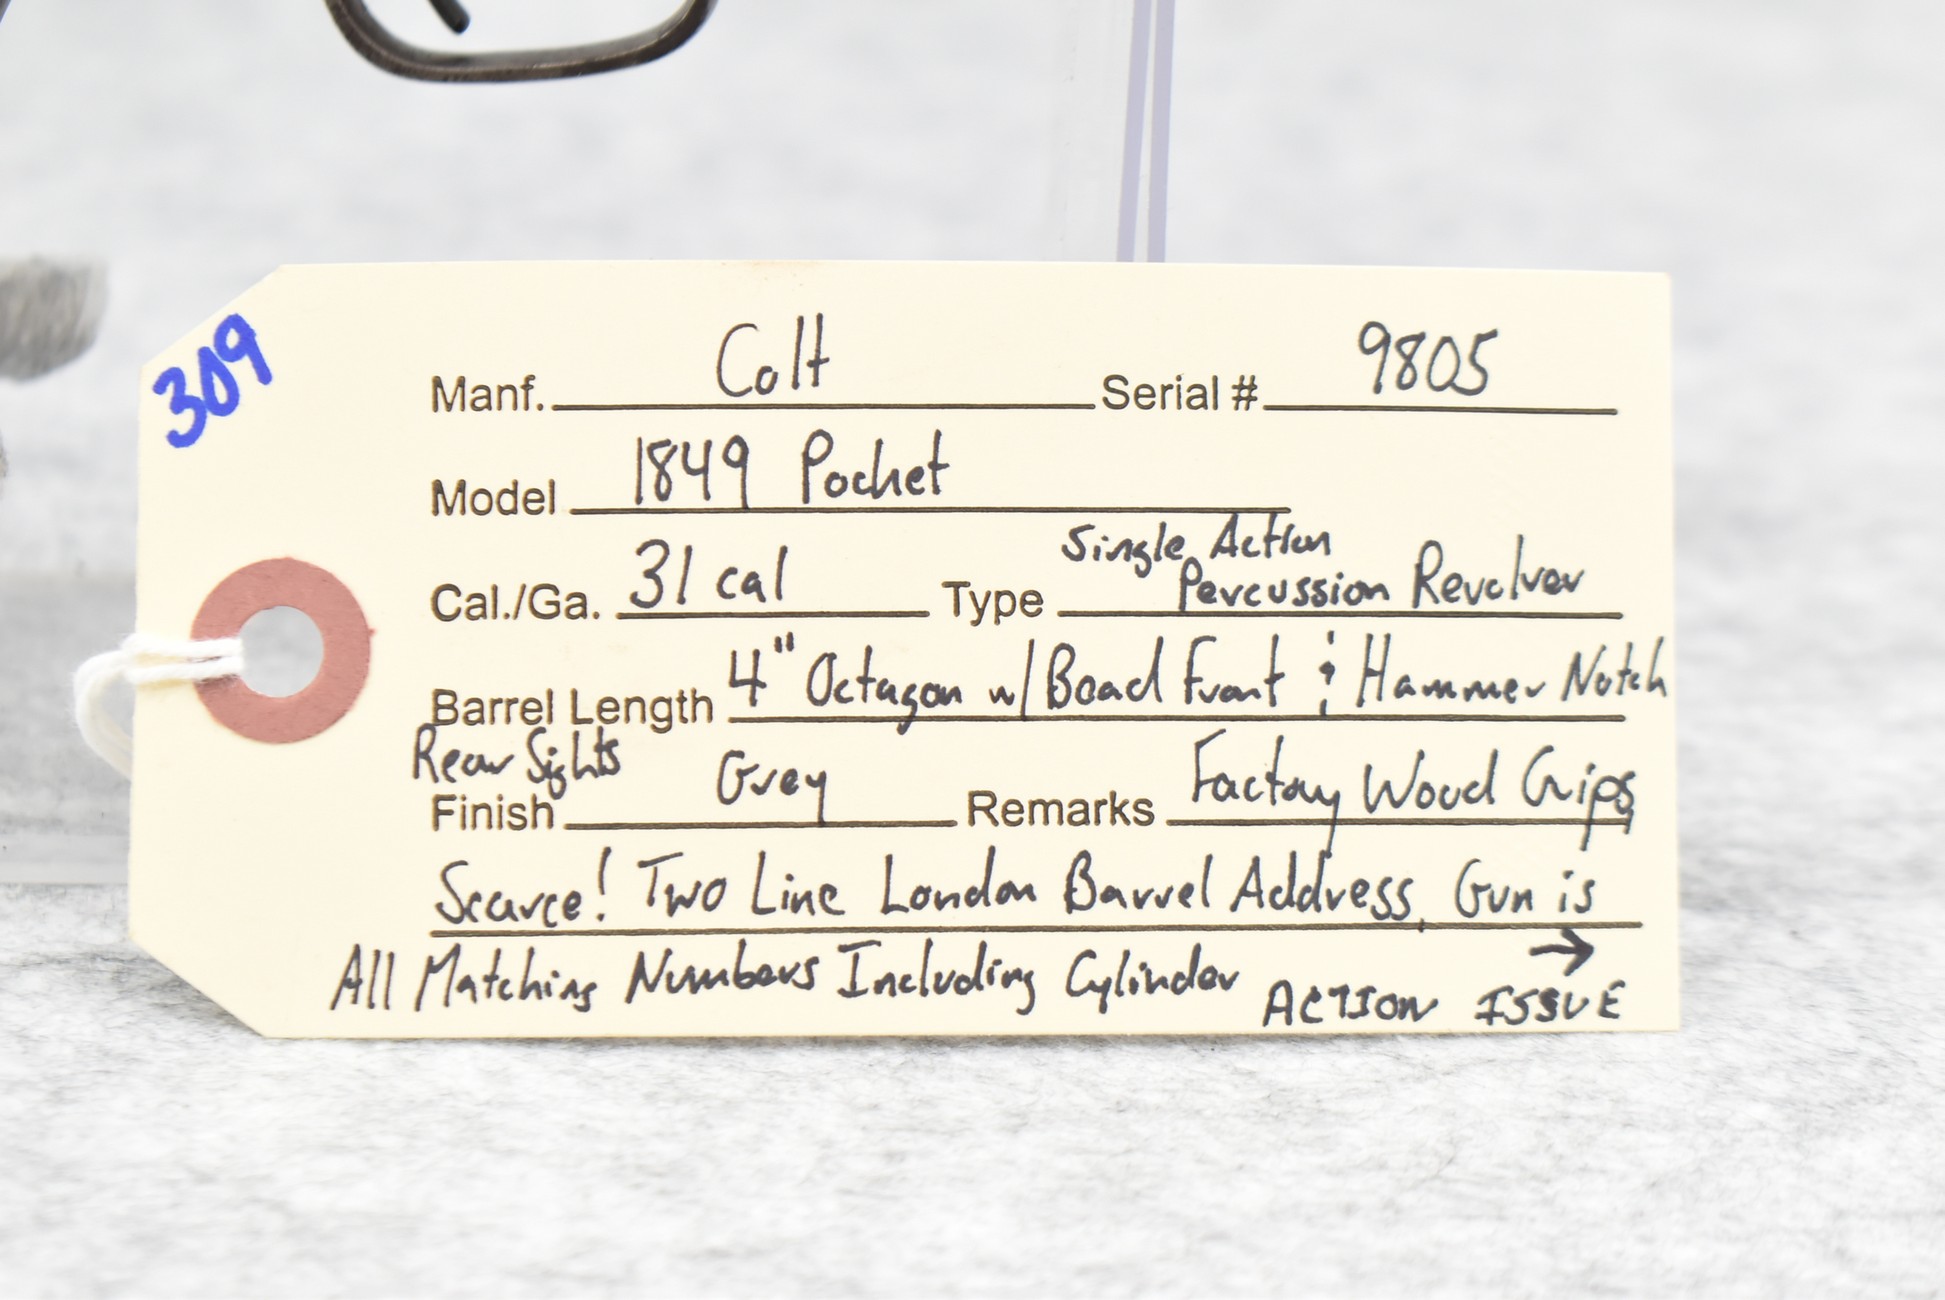 309
Manf. Colt Serial # 9805
Model 1849 Pocket
Cal./Ga. 31 cal Type Single Action Percussion Revolver
Barrel Length 4" Octagon w/ Bead Front & Hammer Notch
Rear Sights
Finish Grey Remarks Factory Wood Grips,
Scarce! Two Line London Barrel Address, Gun is
All Matching Numbers Including Cylinder →
ACTION ISSUE